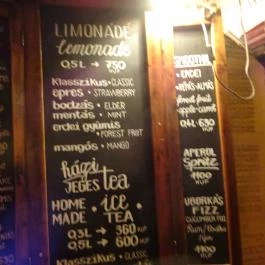 LIMONÁDÉ
lemonade
0,5L → 750
HUF
Klasszikus · CLASSIC
epres · STRAWBERRY
bodzás · ELDER
mentás · MINT
erdei gyümis
· FOREST FRUIT
mangós · MANGO
házi
JEGES tea
HOME · ice
MADE · TEA
0,3L → 360 HUF
0,5L → 600 HUF
Klasszikus · CLASSIC
SMOOTHIE
· ERDEI
forest fruit
apple-carrot
0,4L 630
HUF
APEROL
Spritz
1100
HUF
UBORKÁS
FIZZ
CUCUMBER FIZZ
Rum/Vodka
1100
HUF